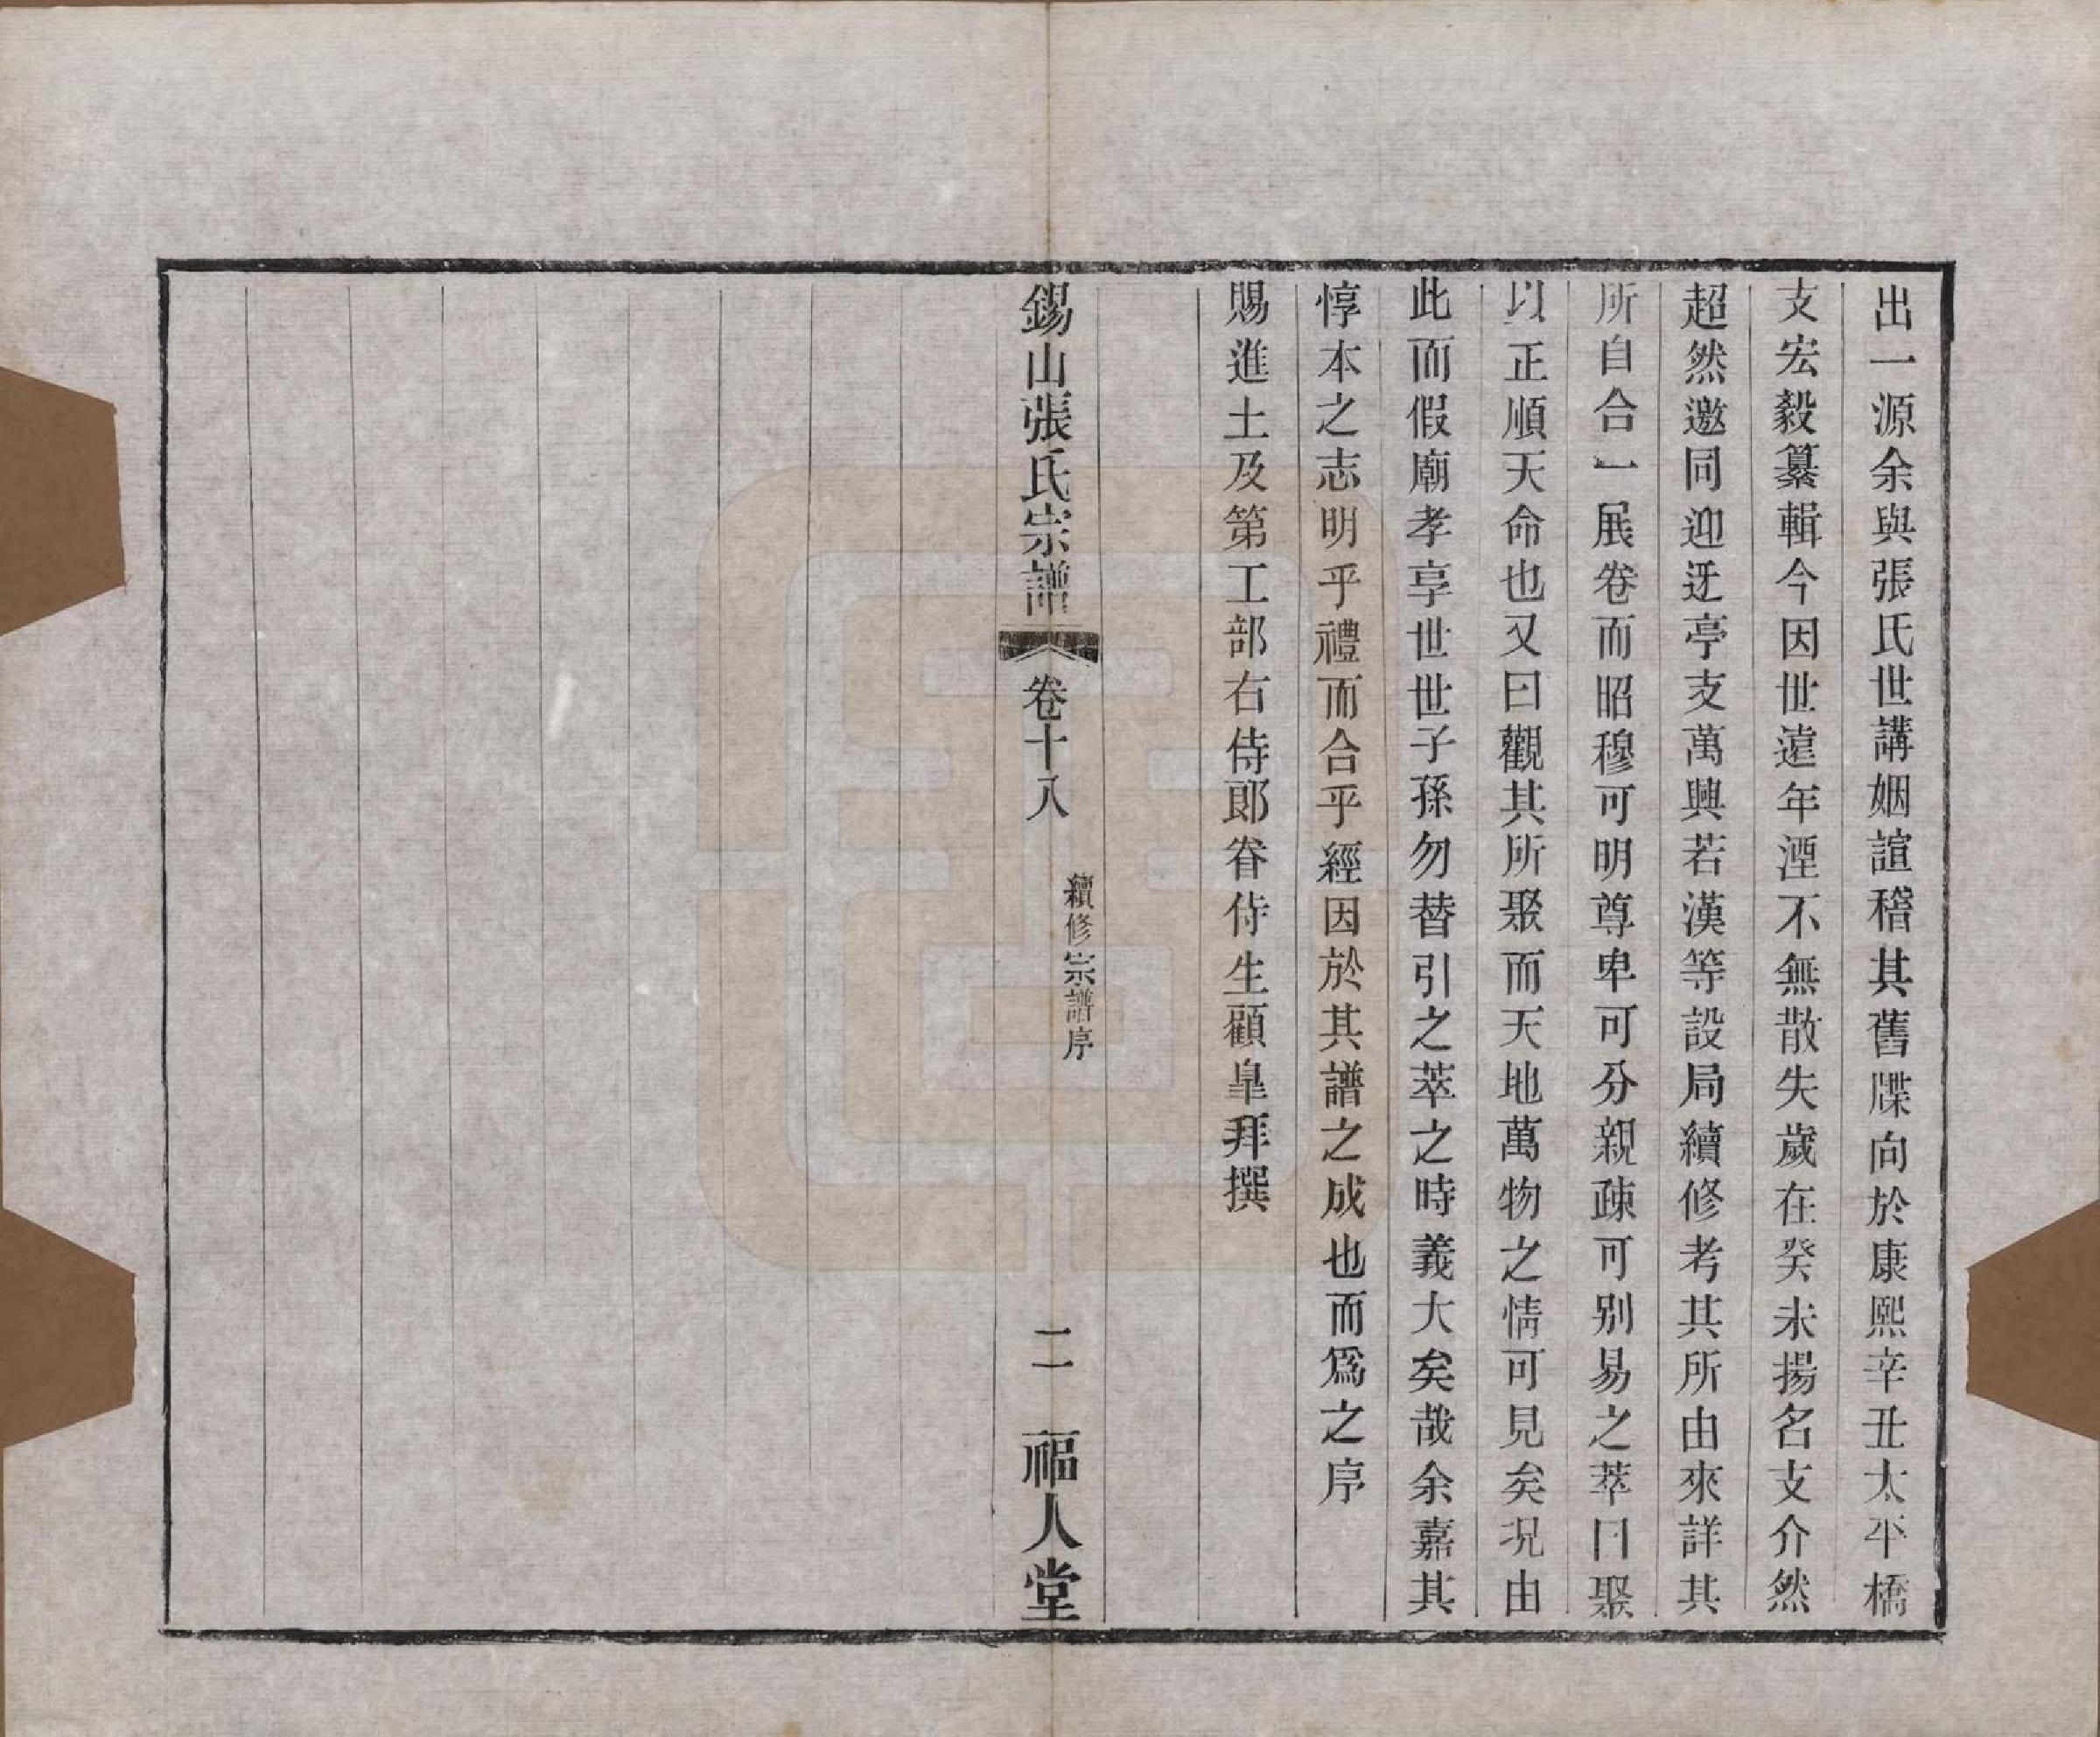 出一源余與張氏世講姻誼稽其舊牒向於康熙辛丑太平橋
支宏毅纂輯今因世遠年湮不無散失歲在癸未揚名支介然
超然邀同迎迓亭支萬興若漢等設局續修考其所由來詳其
所自合一展卷而昭穆可明尊卑可分親疎可別易之萃曰聚
以正順天命也又曰觀其所聚而天地萬物之情可見矣況由
此而假廟孝享世世子孫勿替引之萃之時義大矣哉余嘉其
惇本之志明乎禮而合乎經因於其譜之成也而爲之序
賜進士及第工部右侍郎眷侍生顧皐拜撰
錫山張氏宗譜 卷十八 續修宗譜序 二 福人堂